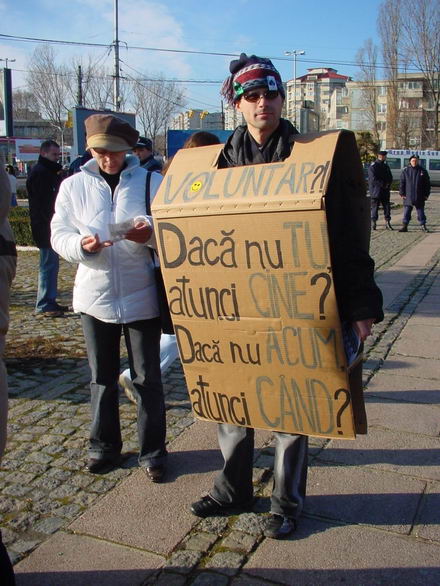 VOLUNTAR?!
Dacă nu TU
atunci CINE?
Dacă nu ACUM
atunci CÂND?